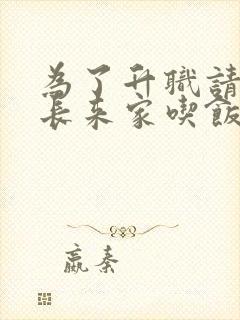 為了升職請
長來家喫飯
嬴秦